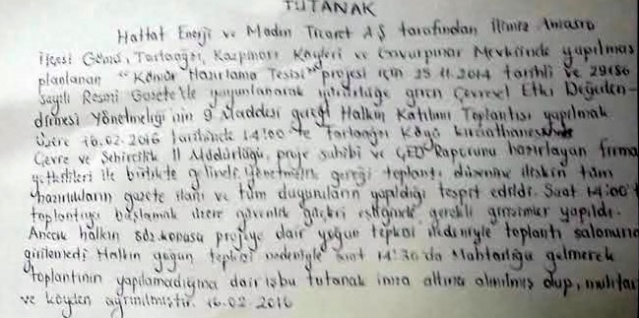 TUTANAK
Hattat Enerji ve Maden Ticaret A.Ş tarafından İlimiz Amasra
İlçesi Gömü, Tarlaağzı, Kazpınarı Köyleri ve Gavurpınar Mevkiinde yapılması
planlanan "Kömür Hazırlama Tesisi" projesi için 25.11.2014 tarihli ve 29186
sayılı Resmi Gazete'de yayınlanarak yürürlüğe giren Çevresel Etki Değerlen-
dirmesi Yönetmeliği'nin 9 Maddesi gereği Halkın Katılımı Toplantısı yapılmak
üzere 16.02.2016 tarihinde 14:00'te Tarlaağzı Köyü kıraathanesinde
Çevre ve Şehircilik İl Müdürlüğü, proje sahibi ve ÇED Raporunu hazırlayan firma
yetkilileri ile birlikte gelindi. Yönetmelik gereği toplantı düzenine ilişkin tüm
hazırlıkların gazete ilanı ve tüm duyuruların yapıldığı tespit edildi. Saat 14:00'
toplantıya başlamak üzere güvenlik güçleri eşliğinde gerekli girişimler yapıldı.
Ancak halkın söz konusu projeye dair yoğun tepkisi nedeniyle toplantı salonuna
girilemedi. Halkın yoğun tepkisi nedeniyle saat 14:30'da Muhtarlığa gelinerek
toplantının yapılamadığına dair işbu tutanak imza altına alınılmış olup, muhtar
ve köyden ayrınılmıştır. 16.02.2016